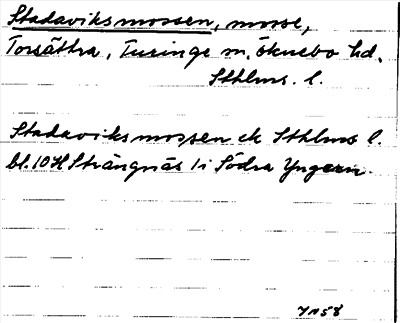 Stadaviksmossen, mosse,
Torsåttra, Turinge sn, Öknebo hd.
Sthlms l.
Stadaviksmossen ek Sthlms l.
bl. 10H Strängnäs 1i Södra Yngern.